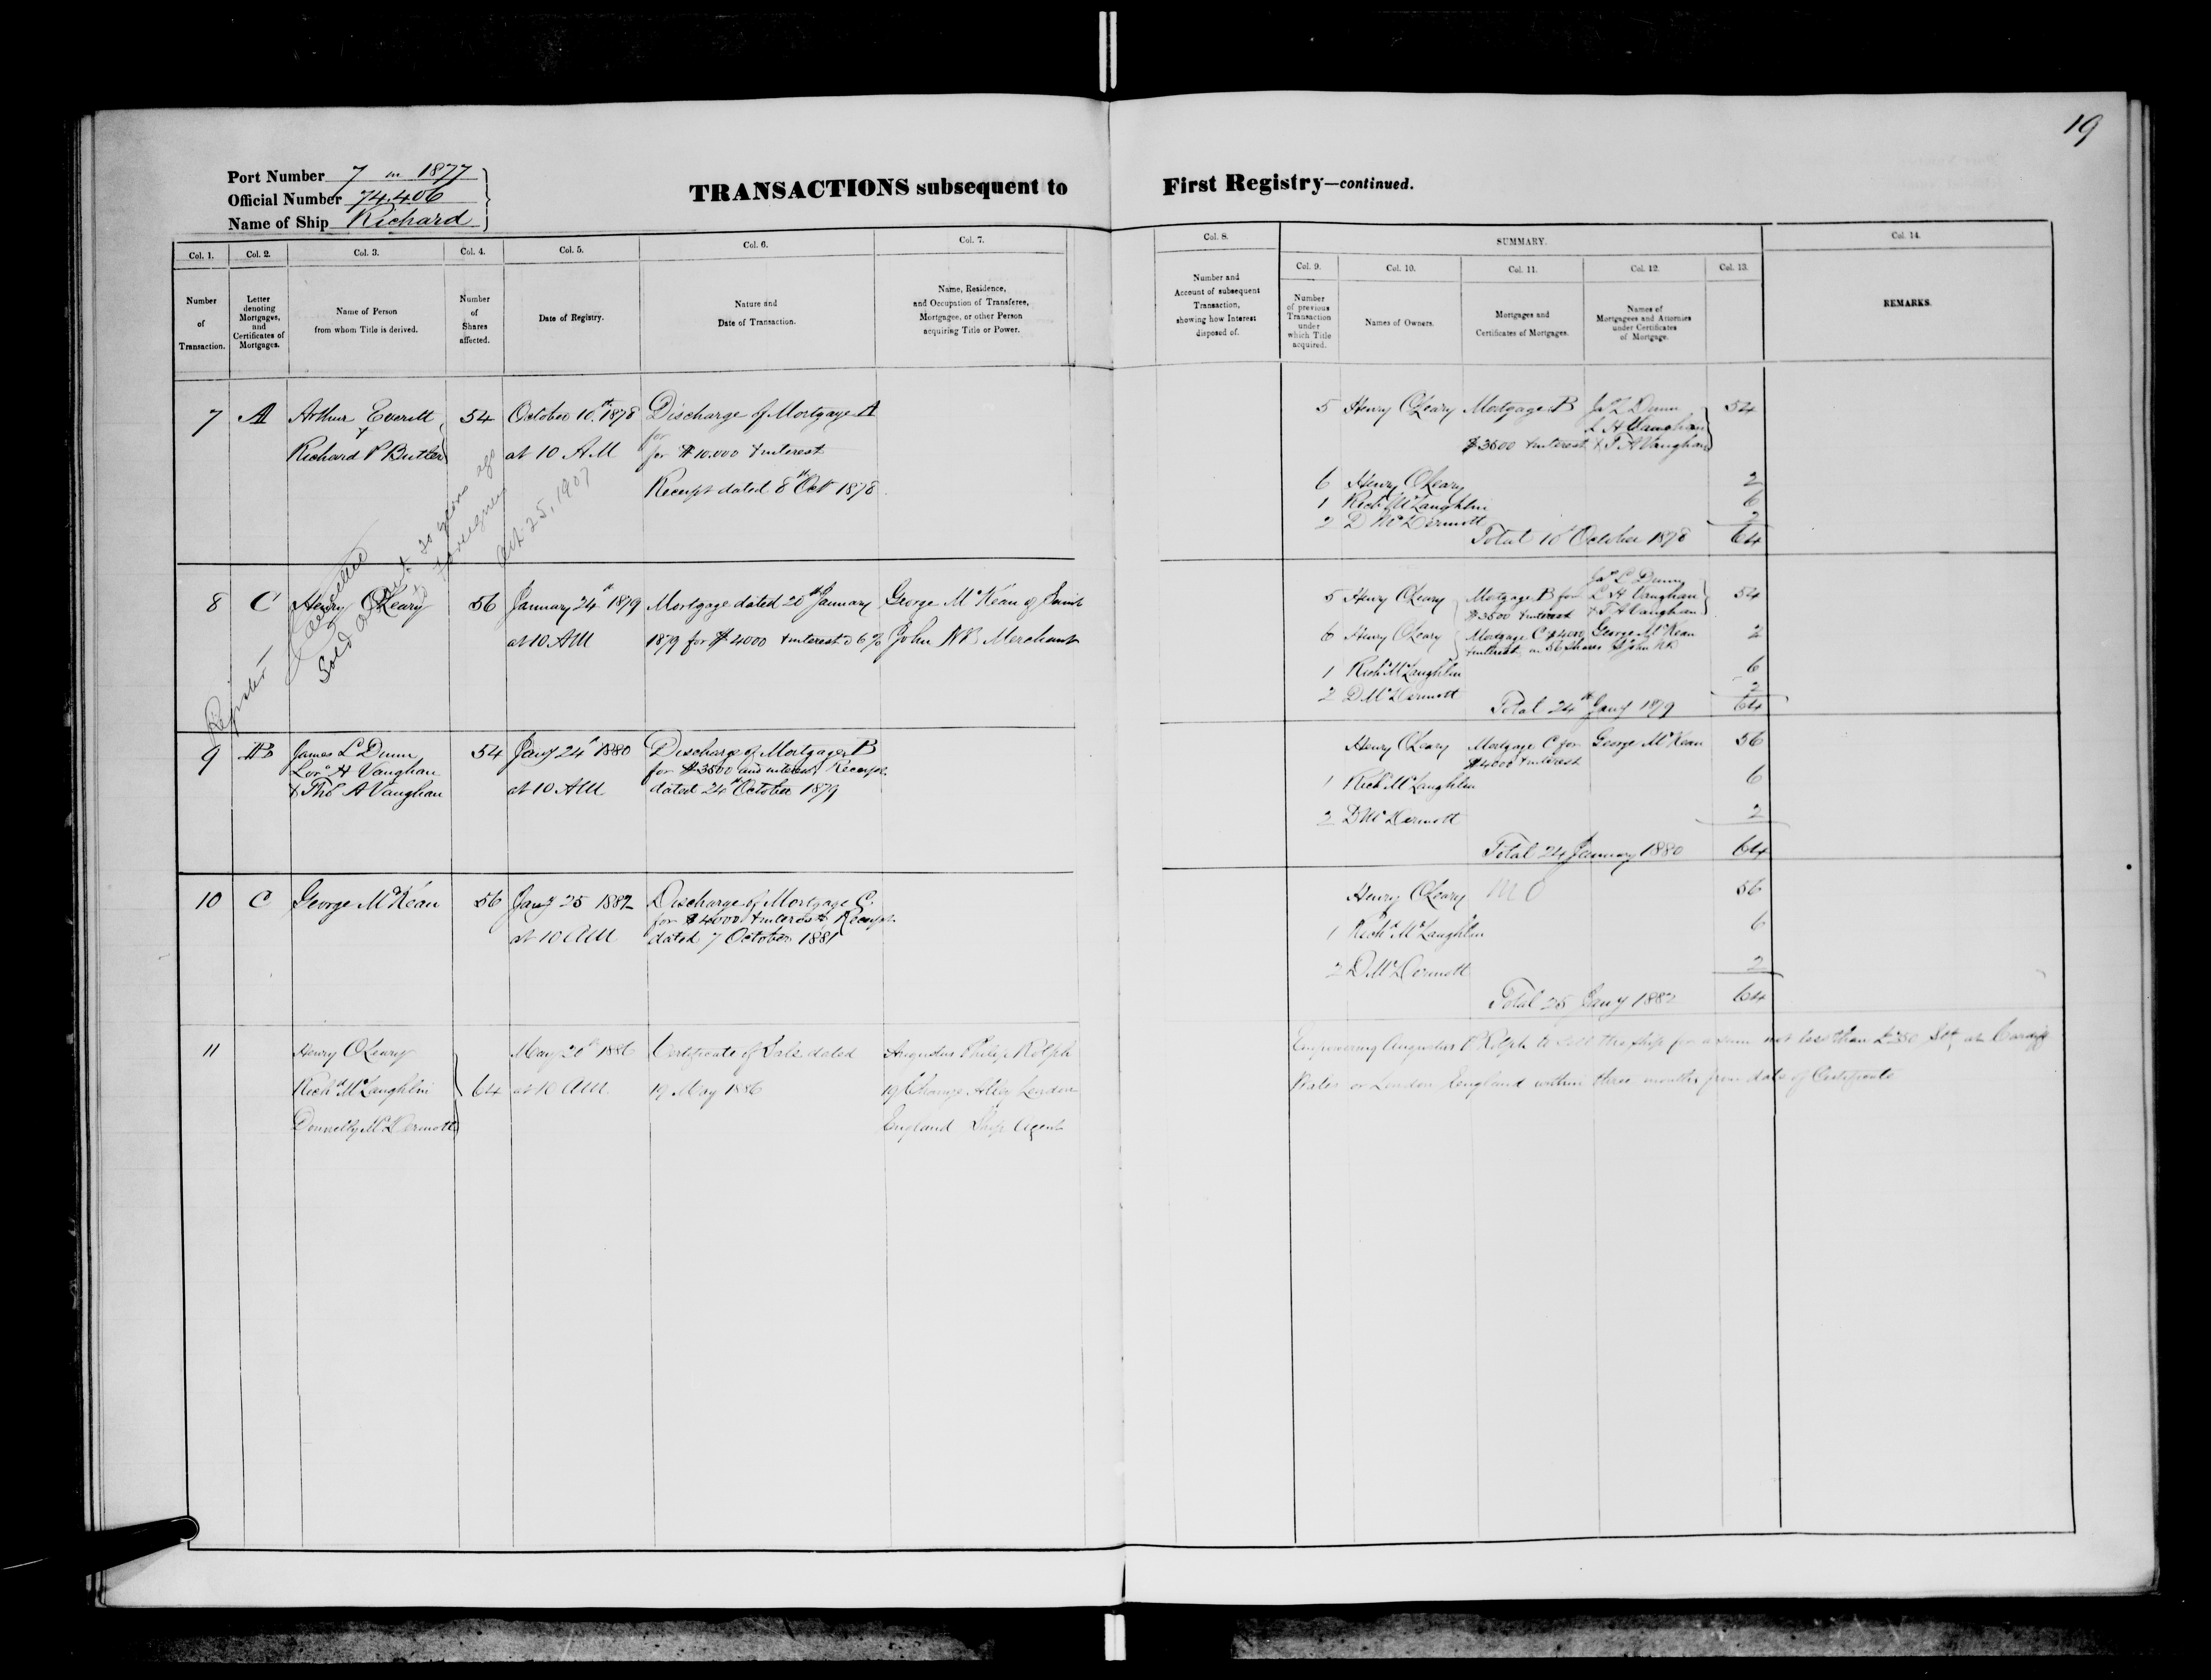 19
Port Number 7 in 1877
Official Number 74.406
Name of Ship Richard
TRANSACTIONS subsequent to First Registry—continued.
Col. 1. Col. 2. Col. 3. Col. 4. Col. 5. Col. 6. Col. 7. Col. 8. SUMMARY. Col. 14.
Col. 9. Col. 10. Col. 11. Col. 12. Col. 13.
Number of Transaction.
Letter denoting Mortgages, and Certificates of Mortgages.
Name of Person from whom Title is derived.
Number of Shares affected.
Date of Registry.
Nature and Date of Transaction.
Name, Residence, and Occupation of Transferee, Mortgagee, or other Person acquiring Title or Power.
Number and Account of subsequent Transaction, showing how Interest disposed of.
Number of previous Transaction under which Title acquired.
Names of Owners.
Mortgages and Certificates of Mortgages.
Names of Mortgagees and Attornies under Certificates of Mortgage.
REMARKS.
7 A Arthur Everitt 54 October 10th 1878 Discharge of Mortgage A
&
for
Richard P Butler at 10 AM for $10.000 & interest
Receipt dated 8th Oct 1878
5 Henry O'Leary Mortgage B Jas L Dunn 54
L H Vaughan
$3500 & interest & T A Vaughan
6 Henry O'Leary 2
1 Richd McLaughlin 6
2 D McDermott 2
Total 10 October 1878 64
Register
Cancelled
Sold about 20 years ago
to Foreigners
Oct. 25, 1907
8 C Henry O'Leary 56 January 24th 1879 Mortgage dated 20th January George McKean of Saint
at 10 AM 1879 for $4000 & interest @ 6% John NB Merchant
Jas L Dunn
5 Henry O'Leary Mortgage B for L H Vaughan 54
$3500 & interest & T A Vaughan
6 Henry O'Leary Mortgage C $4000 George McKean 2
& interest on 56 Shares St John NB
1 Richd McLaughlin 6
2 D McDermott 2
Total 24th Jany 1879 64
9 B James L Dunn 54 Jany 24th 1880 Discharge of Mortgage B
Lor. H Vaughan for $3500 and interest Receipt
& Thos A Vaughan at 10 AM dated 24th October 1879
Henry O'Leary Mortgage C for George McKean 56
$4000 & interest
1 Richd McLaughlin 6
2 D McDermott 2
Total 24 January 1880 64
10 C George McKean 56 Jany 25 1882 Discharge of Mortgage C
for $4000 & interest Receipt
at 10 AM dated 7 October 1881
Henry O'Leary M O 56
1 Richd McLaughlin 6
2 D McDermott 2
Total 25 Jany 1882 64
11 Henry O'Leary May 20th 1886 Certificate of Sale dated Augustus Philip Rolph
Richd McLaughlin 64 at 10 AM. 19 May 1886 19 Change Alley London
Donnelly McDermott England Ship Agent
Empowering Augustus P Rolph to sell the Ship for a sum not less than Stg at Cardiff
Wales or London England within three months from date of Certificate